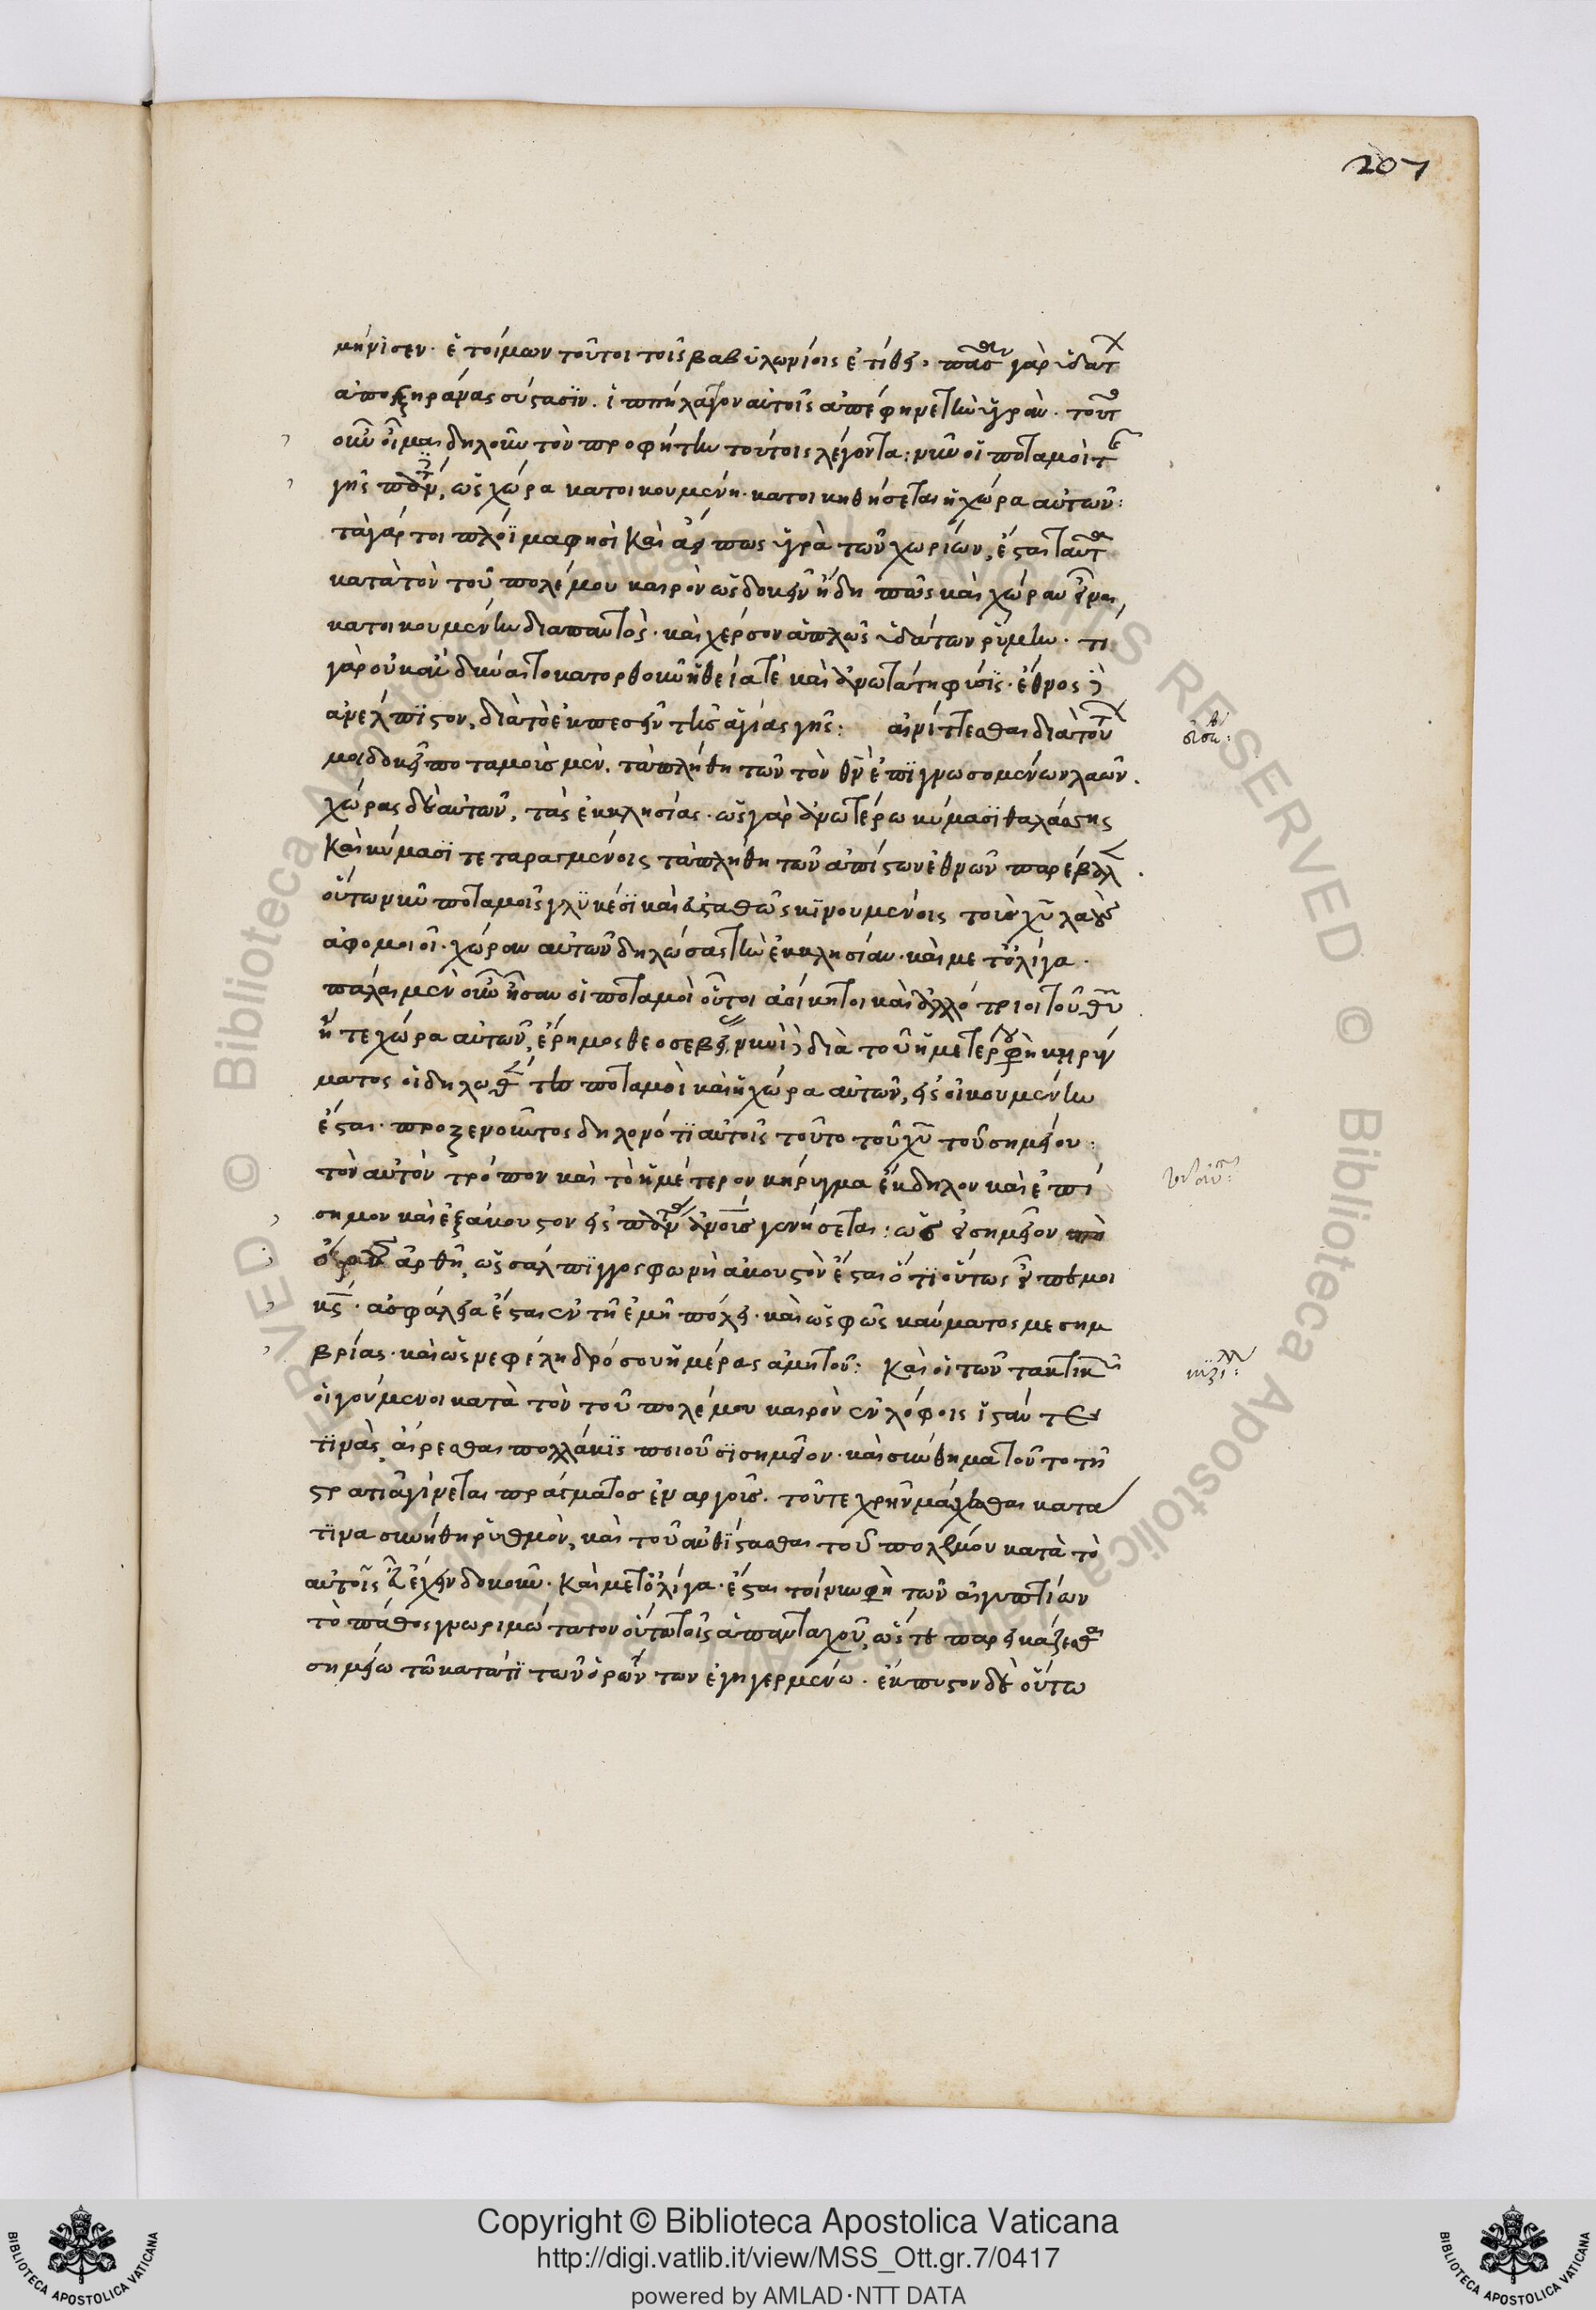 207
μήνισεν. ἕτοίμων τοῦτοι τοῖς βαβυλωνίοις ἐτίθει. πᾶσαν γὰρ ὑδάτων
ἀποξηράνας σύστασιν. ἱππήλατον αὐτοῖς ἀπέφηνε τὴν ὑγράν. τοῦτο
οὖν οἶμαι δηλοῦν τὸν προφήτην τούτοις λέγοντα: νῦν οἱ ποταμοὶ τῆς
γῆς πάντες, ὡς χώρα κατοικουμένη. κατοικηθήσεται ἡ χώρα αὐτῶν:
τὰ γάρ τοι πλόϊμα φησὶ καὶ ἀεί πως ὑγρὰ τῶν χωρίων, ἔσται ταῦτα
κατὰ τὸν τοῦ πολέμου καιρὸν ὡς δοκεῖν ἤδη πως καὶ χώραν εἶναι
κατοικουμένην διαπαντὸς. καὶ χέρσον ἁπλῶς ὑδάτων ἐρήμην. τί
γὰρ οὐκ ἂν δύναιτο κατορθοῦν ἡ θεία τὲ καὶ ἀνωτάτη φύσις. ἔθνος
ἀνέλπιστον, διὰ τὸ ἐκπεσεῖν τῆς ἁγίας γῆς: αἰνίττεσθαι διὰ τούτων
μοι δοκεῖ ποταμοὺς μὲν, τὰ πλήθη τῶν τὸν θν ἐπιγνωσομένων λαῶν.
χώρας δὲ αὐτῶν, τὰς ἐκκλησίας. ὡς γὰρ ἀνωτέρω κύμασι θαλάσσης
καὶ κύμασι τεταραγμένοις τὰ πλήθη τῶν ἀπίστων ἐθνῶν παρέβαλλεν.
οὕτω νῦν ποταμοῖς γλυκέσι καὶ εὐσταθῶς κινουμένοις τοὺς χυ λαοὺς
ἀφομοιοῖ. χώραν αὐτῶν δηλώσας τὴν ἐκκλησίαν. καὶ μετ' ὀλίγα.
πάλαι μὲν οὖν ἦσαν οἱ ποταμοὶ οὗτοι ἀοίκητοι καὶ ἀλλότριοι τοῦ θυ
ἥ τε χώρα αὐτῶν, ἔρημος θεοσεβείας, νυνὶ δὲ διὰ τοῦ ἡμετέρου φησὶ κηρύγ
ματος οἱ δηλωθέντες ποταμοὶ καὶ ἡ χώρα αὐτῶν, εἰς οἰκουμένην
ἔσται. προξενοῦντος δηλονότι αὐτοῖς τοῦτο τοῦ χυ τοῦ σημείου:
τὸν αὐτὸν τρόπον καὶ τὸ ἡμέτερον κήρυγμα ἔκδηλον καὶ ἐπί
σημον καὶ ἐξάκουστον εἰς πάντας ἀνους γενήσεται: ὡς εἰ σημεῖον ἀπὸ
ὄρους ἀρθῆ, ὡς σάλπιγγος φωνὴ ἀκουστὸν ἔσται ὅτι οὕτως εἶπέ μοι
κς. ἀσφάλεια ἔσται ἐν τῆ ἐμῆ πόλει. καὶ ὡς φῶς καύματος μεσημ
βρίας. καὶ ὡς νεφέλη δρόσου ἡμέρας ἀμητοῦ: καὶ οἱ τῶν τακτικῶν
ἡγούμενοι κατὰ τὸν τοῦ πολέμου καιρὸν ἐν λόφοις ἱστάν τε
τινὰς, αἴρεσθαι πολλάκις ποιοῦσι σημεῖον. καὶ σύνθημα τοῦτο τῆ
στρατιᾶ γίνεται πράγματος ἐναργοῦς. τοῦ τε χρῆναι μάχεσθαι κατά
τινα συνήθη ῥυθμὸν, καὶ τοῦ ἀνθίστασθαι τοῦ πολέμου κατὰ τὸ
αὐτοῖς εὖ ἔχειν δοκοῦν. καὶ μετ' ὀλίγα. ἔσται τοίνυν φησὶ τῶν αἰγυπτίων
τὸ πάθος γνωριμώτατον οὕτω τοῖς ἁπανταχοῦ, ὥστε παρεικάζεσθαι
σημείω τῶ κατά τι τῶν ὀρῶν τῶν ἐγηγερμένω. ἔκπυστον δὲ οὕτω
Copyright © Biblioteca Apostolica Vaticana
http://digi.vatlib.it/view/MSS_Ott.gr.7/0417
powered by AMLAD·NTT DATA
BIBLIOTECA APOSTOLICA VATICANA
BIBLIOTECA APOSTOLICA VATICANA